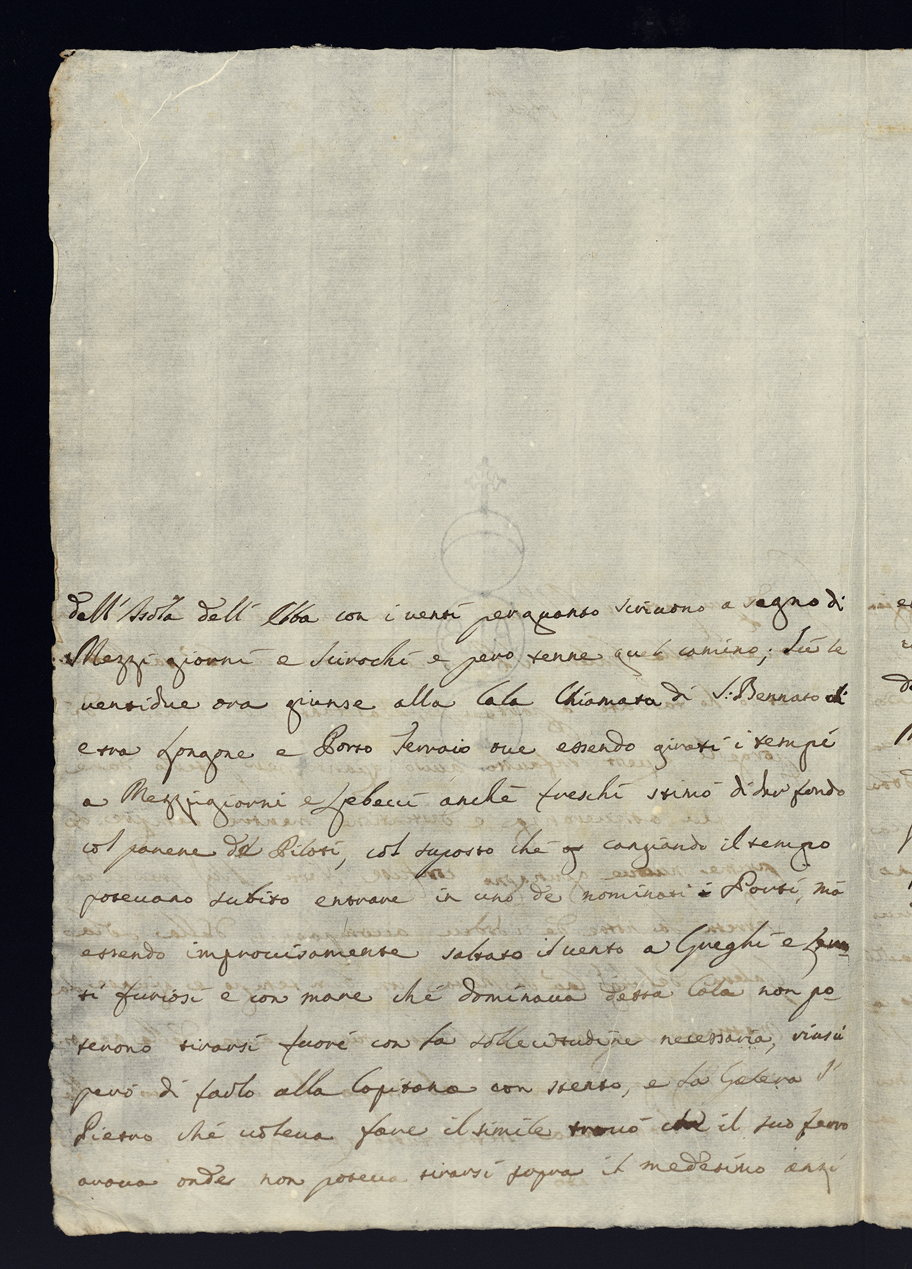 dell' Isola dell' Elba con i venti perquanto scrivono a segno di
Mezzi giorni e Scirochi e pero tenne quel camino; Sù le
ventidue ora giunse alla Cala Chiamata di S: Bennato di
etra Longone e Porto Ferraio ove essendo girati i tempi
a Mezzigiorni e Lebecci anche freschi stimò di dar fondo
col parere de Piloti, col suposto che cangiando il tempo
potevano subito entrare in uno de nominati Porti, mà
essendo improvisamente saltato il vento a Greghi e Levan
ti furiosi e con mare che dominava detta Cala non po
terono tirarsi fuori con la sollecitudine necessaria, riusci
però di farlo alla Capitana con stento, e La Galera S.
Pietro che voleva fare il simile trovò che il suo ferro
arava onde non poteva tirarsi sopra il medesimo anzi